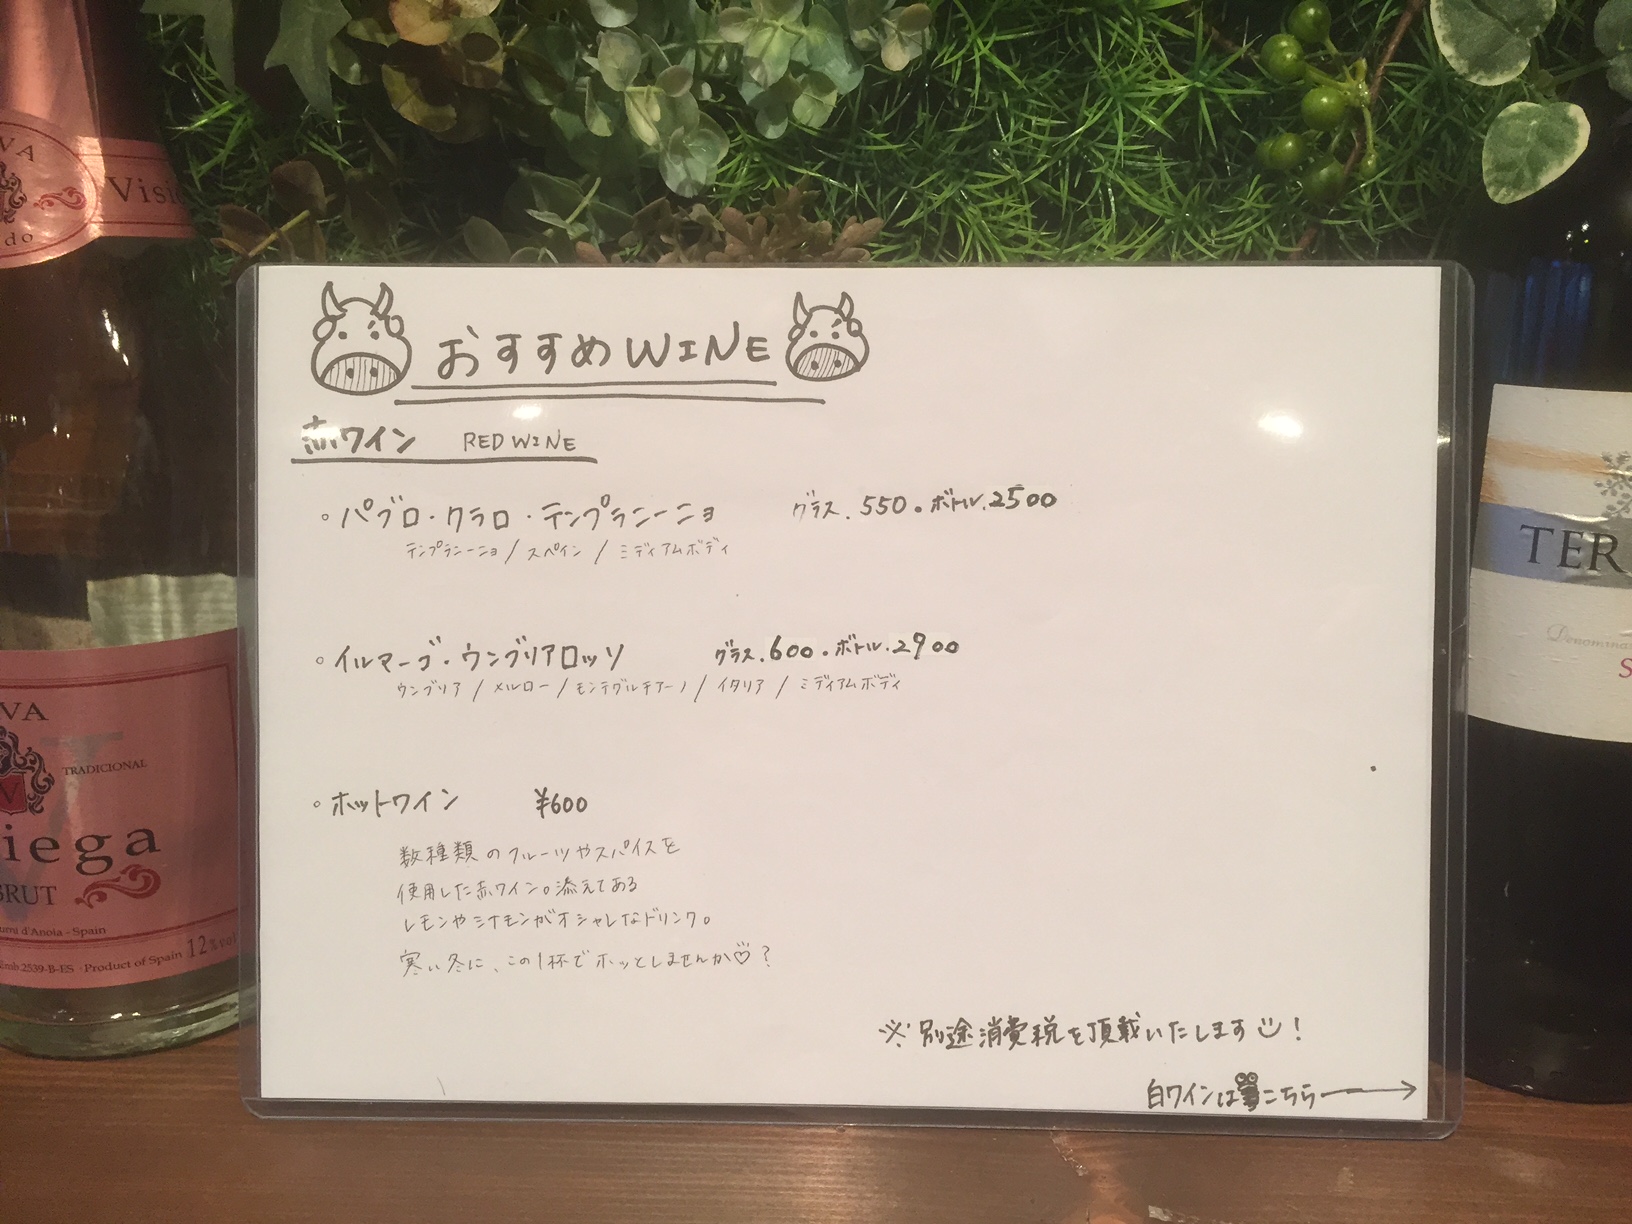 おすすめWINE
赤ワイン RED WINE
。パブロ・クラロ・テンプラニーニョ グラス.550。ボトル.2500
テンプラニーニョ/スペイン/ミディアムボディ
。イルマーゴ・ウンブリアロッソ グラス.600.ボトル.2900
ウンブリア/メルロー/モンテプルチアーノ/イタリア/ミディアムボディ
。ホットワイン ¥600
数種類のフルーツやスパイスを
使用した赤ワイン。添えてある
レモンやシナモンがオシャレなドリンク。
寒い冬に、この1杯でホッとしませんか♡?
※別途消費税を頂戴いたします!
白ワインはこちら→
VA
Visi
do
VA
TRADICIONAL
V
iega
BRUT
d'Anoia - Spain
2539-B-ES · Product of Spain 12%vol
TER
Denomina
S